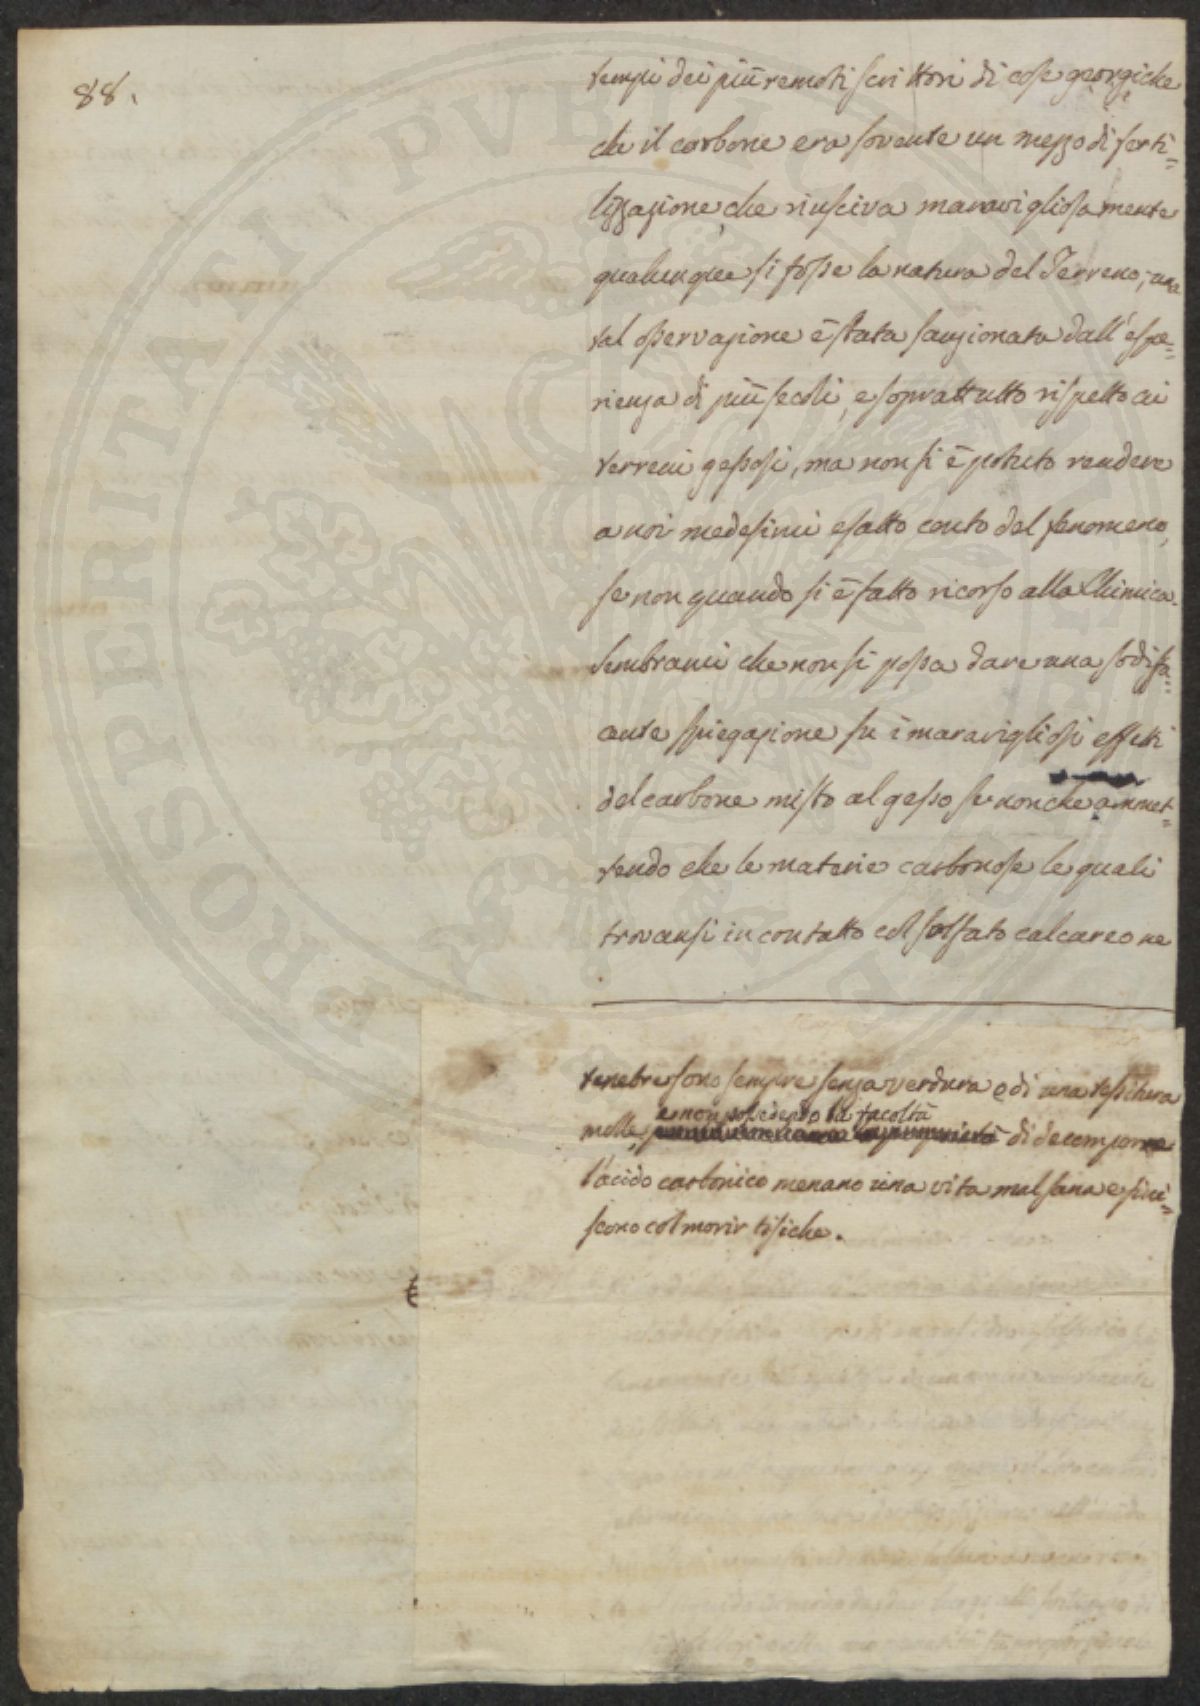 88.
tempi dei più remoti scrittori di cose georgiche
che il carbone era sovente un mezzo di ferti=
lizzazione, che riusciva maravigliosamente
qualunque si fosse la natura del Terreno; una
tal osservazione è stata sanzionata dall'espe=
rienza di più secoli, e soprattutto rispetto ai
terreni gessosi, ma non si è potuto rendere
a noi medesimi esatto conto del fenomeno,
se non quando si è fatto ricorso alla Chimica.
Sembrami che non si possa dare una sodisfa=
cente spiegazione su i maravigliosi effetti
del carbone misto al gesso se non che ammet=
tendo che le materie carbonose le quali
trovansi in contatto col solfato calcareo ne
tenebre sono sempre senza verdura e di una tessitura
e non possedendo la facoltà
molle, di decomporre
l'acido carbonico menano una vita mal sana e fini=
scono col morir tisiche.
PROSPERITATI PVBLICAE